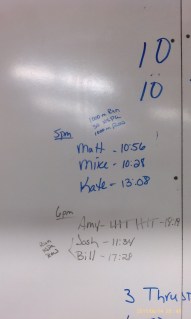 10
:
10
5pm
Matt - 10:56
Mike - 10:28
Kate - 13:08
6pm
Amy - HIT HIT -
Josh - 11:34
Bill - 17:28
3 Thrust